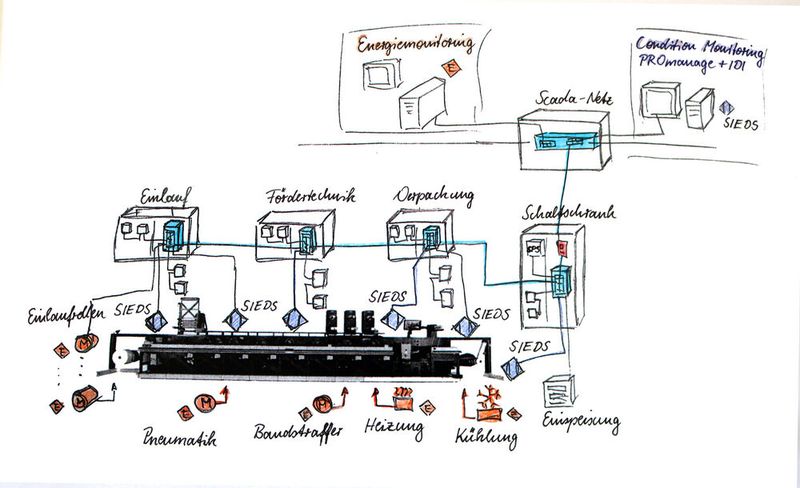 Energiemonitoring
E
Condition Monitoring
PROmanage + IDI
SIEDS
Scada-Netz
Einlauf
Fördertechnik
Verpackung
Schaltschrank
Einlaufrollen
SIEDS
SIEDS
SIEDS
SIEDS
SIEDS
SIEDS
E
M
E
E
M
E
M
E
E
Pneumatik
Bandstraffer
Heizung
Kühlung
Einspeisung